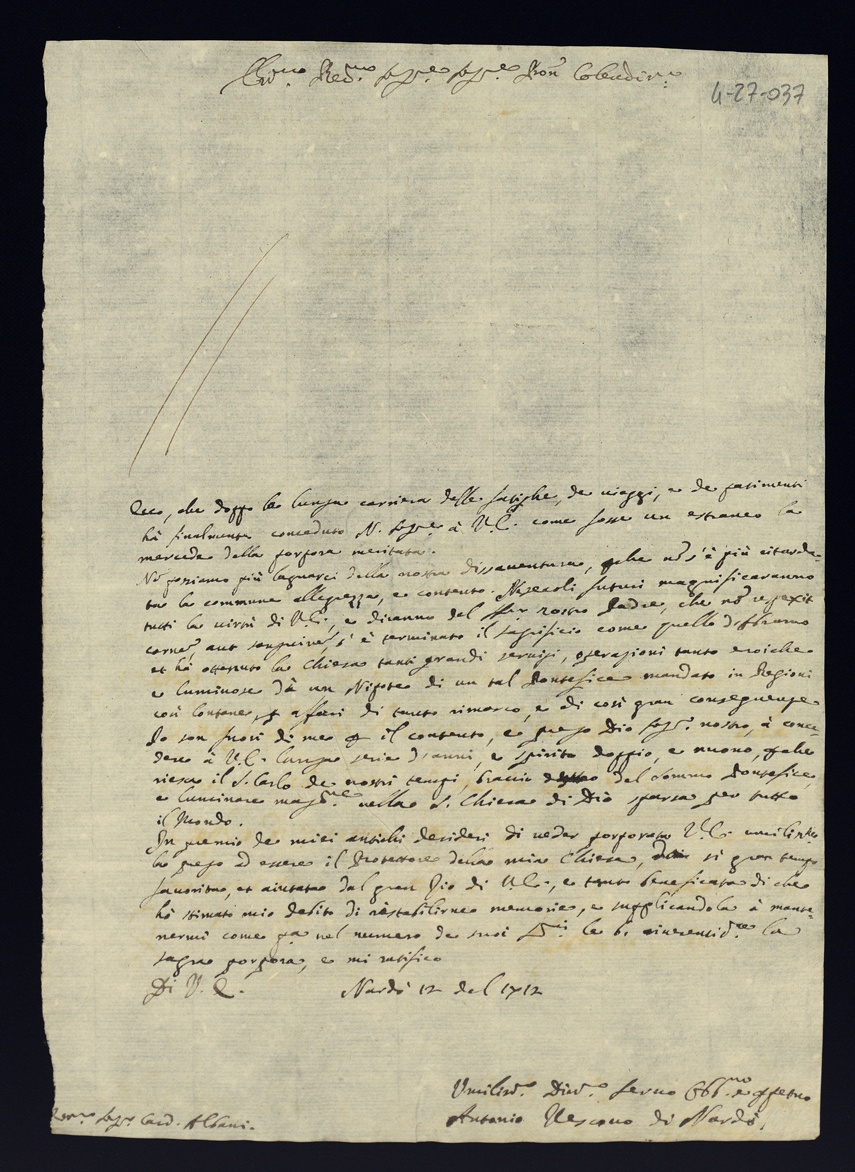 Em.mo Rev.mo Sig.re Sig.re Pron Colendis.mo
4-27-037
Ecco, che doppo la lunga carriera delle fatighe, de viaggi, e de patimenti
hà finalmente conceduto N. Sig.re à V.E. come fosse un estraneo la
mercede della porpora meritata.
Nō possiamo più lagnarci della nostra disavventura, che nō s'è più ritarda-
ta la commune allegrezza, e contento. Ne secoli futuri magnificaranno
tutti la virtù di V.E., e diranno del nostro Padre, che nō respexit
carnē aut sanguinē, s'è terminato il sagrificio come quello d'Abramo
et hà ottenuto la Chiesa tanti grandi servizi, operazioni tanto eroiche
e luminose dà un Nipote di un tal Pontefice mandato in Regioni
così lontane, p affari di tanto rimarco, e di così gran conseguenze
Io son fuori di me p il contento, e prego Dio Sig.r nostro, à conce-
dere à V.E. lunga serie d'anni, e spirito doppio, e nuovo, che
riesca il S. Carlo de nostri tempi, braccio del Sommo Pontefice,
e luminare nella S. Chiesa di Dio sparsa per tutto
il Mondo.
In premio de miei antichi desideri di veder porporato V.E. umilm.te
la prego ad essere il Protettore della mia Chiesa, si gran tempo
favorita, et aiutata dal gran Zio di V.E., e tanto beneficata di che
hà stimato mio debito di ristabilirne memorie, e supplicandola à mante-
nermi come p.a nel numero de suoi le b. riverentis.te la
sagra porpora, e mi ratifico
Di V. E. Nardò 12 del 1712
Umilis.o Div.o Servo Obb.mo
Antonio Vescovo di Nardò
Sig.r Card. Albani.